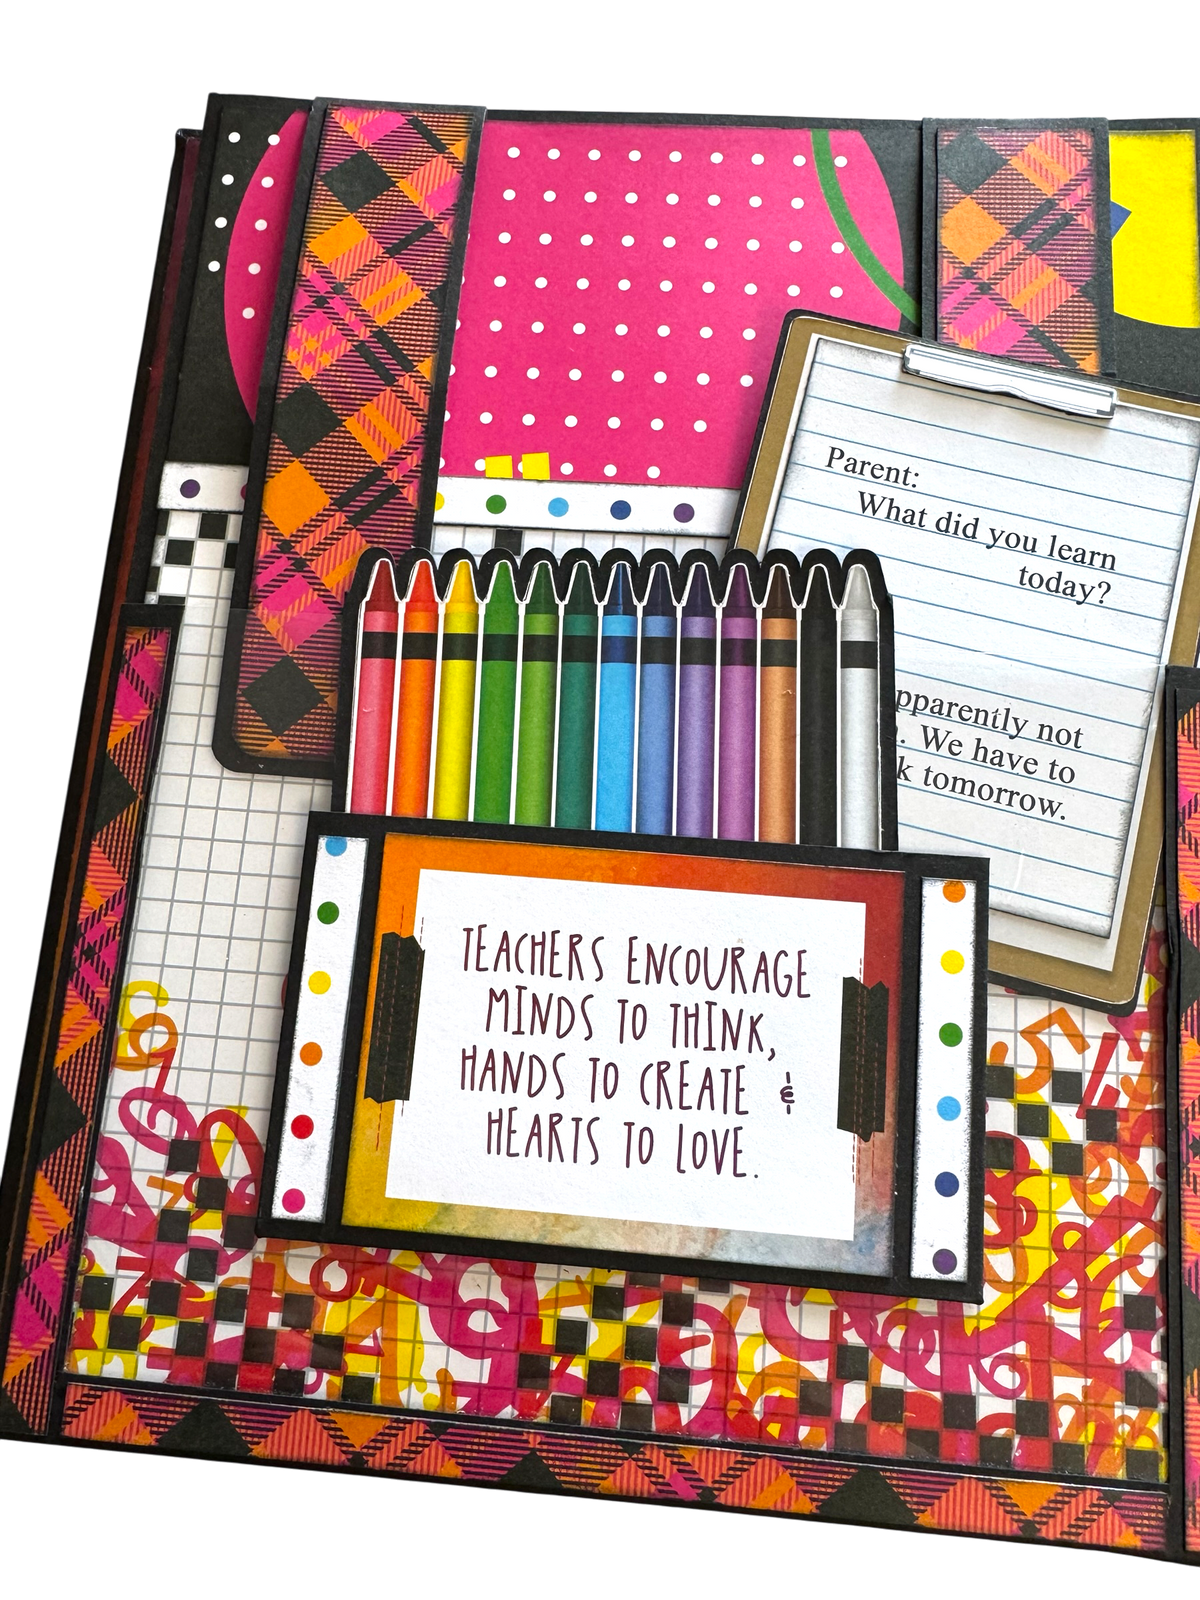 Parent:
What did you learn
today?
pparently not
. We have to
k tomorrow.
TEACHERS ENCOURAGE
MINDS TO THINK,
HANDS TO CREATE &
HEARTS TO LOVE.